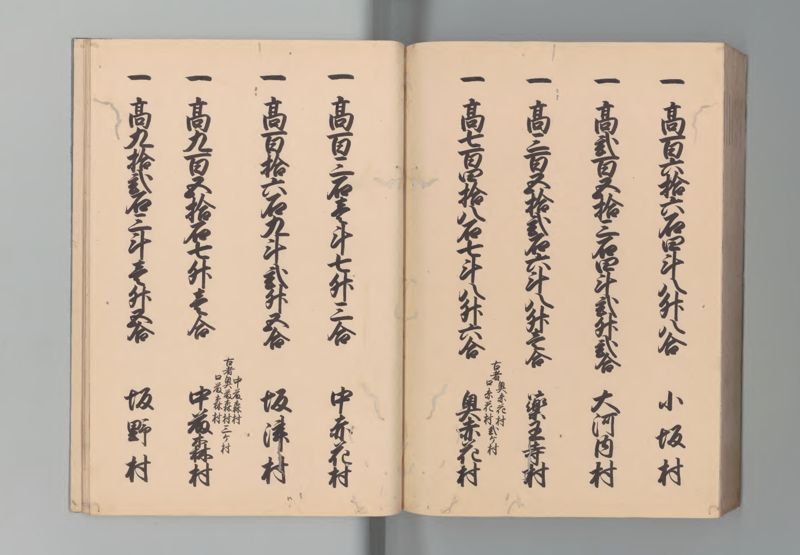 一 高百六拾六石四斗八升八合 小坂村
一 高弐百五拾三石四斗弐升弐合 大河内村
一 高三百五拾弐石六斗八升壱合 薬王寺村
一 高七百四拾八石七斗八升六合
古者奥赤花村
口赤花村弐ケ村
奥赤花村
一 高百三石壱斗七升三合 中赤花村
一 高百拾六石九斗弐升五合 坂津村
一 高九百五拾石七升壱合
中藪森村
古者奥藪森村三ケ村
口藪森村
中藪森村
一 高九拾弐石三斗壱升五合 坂野村